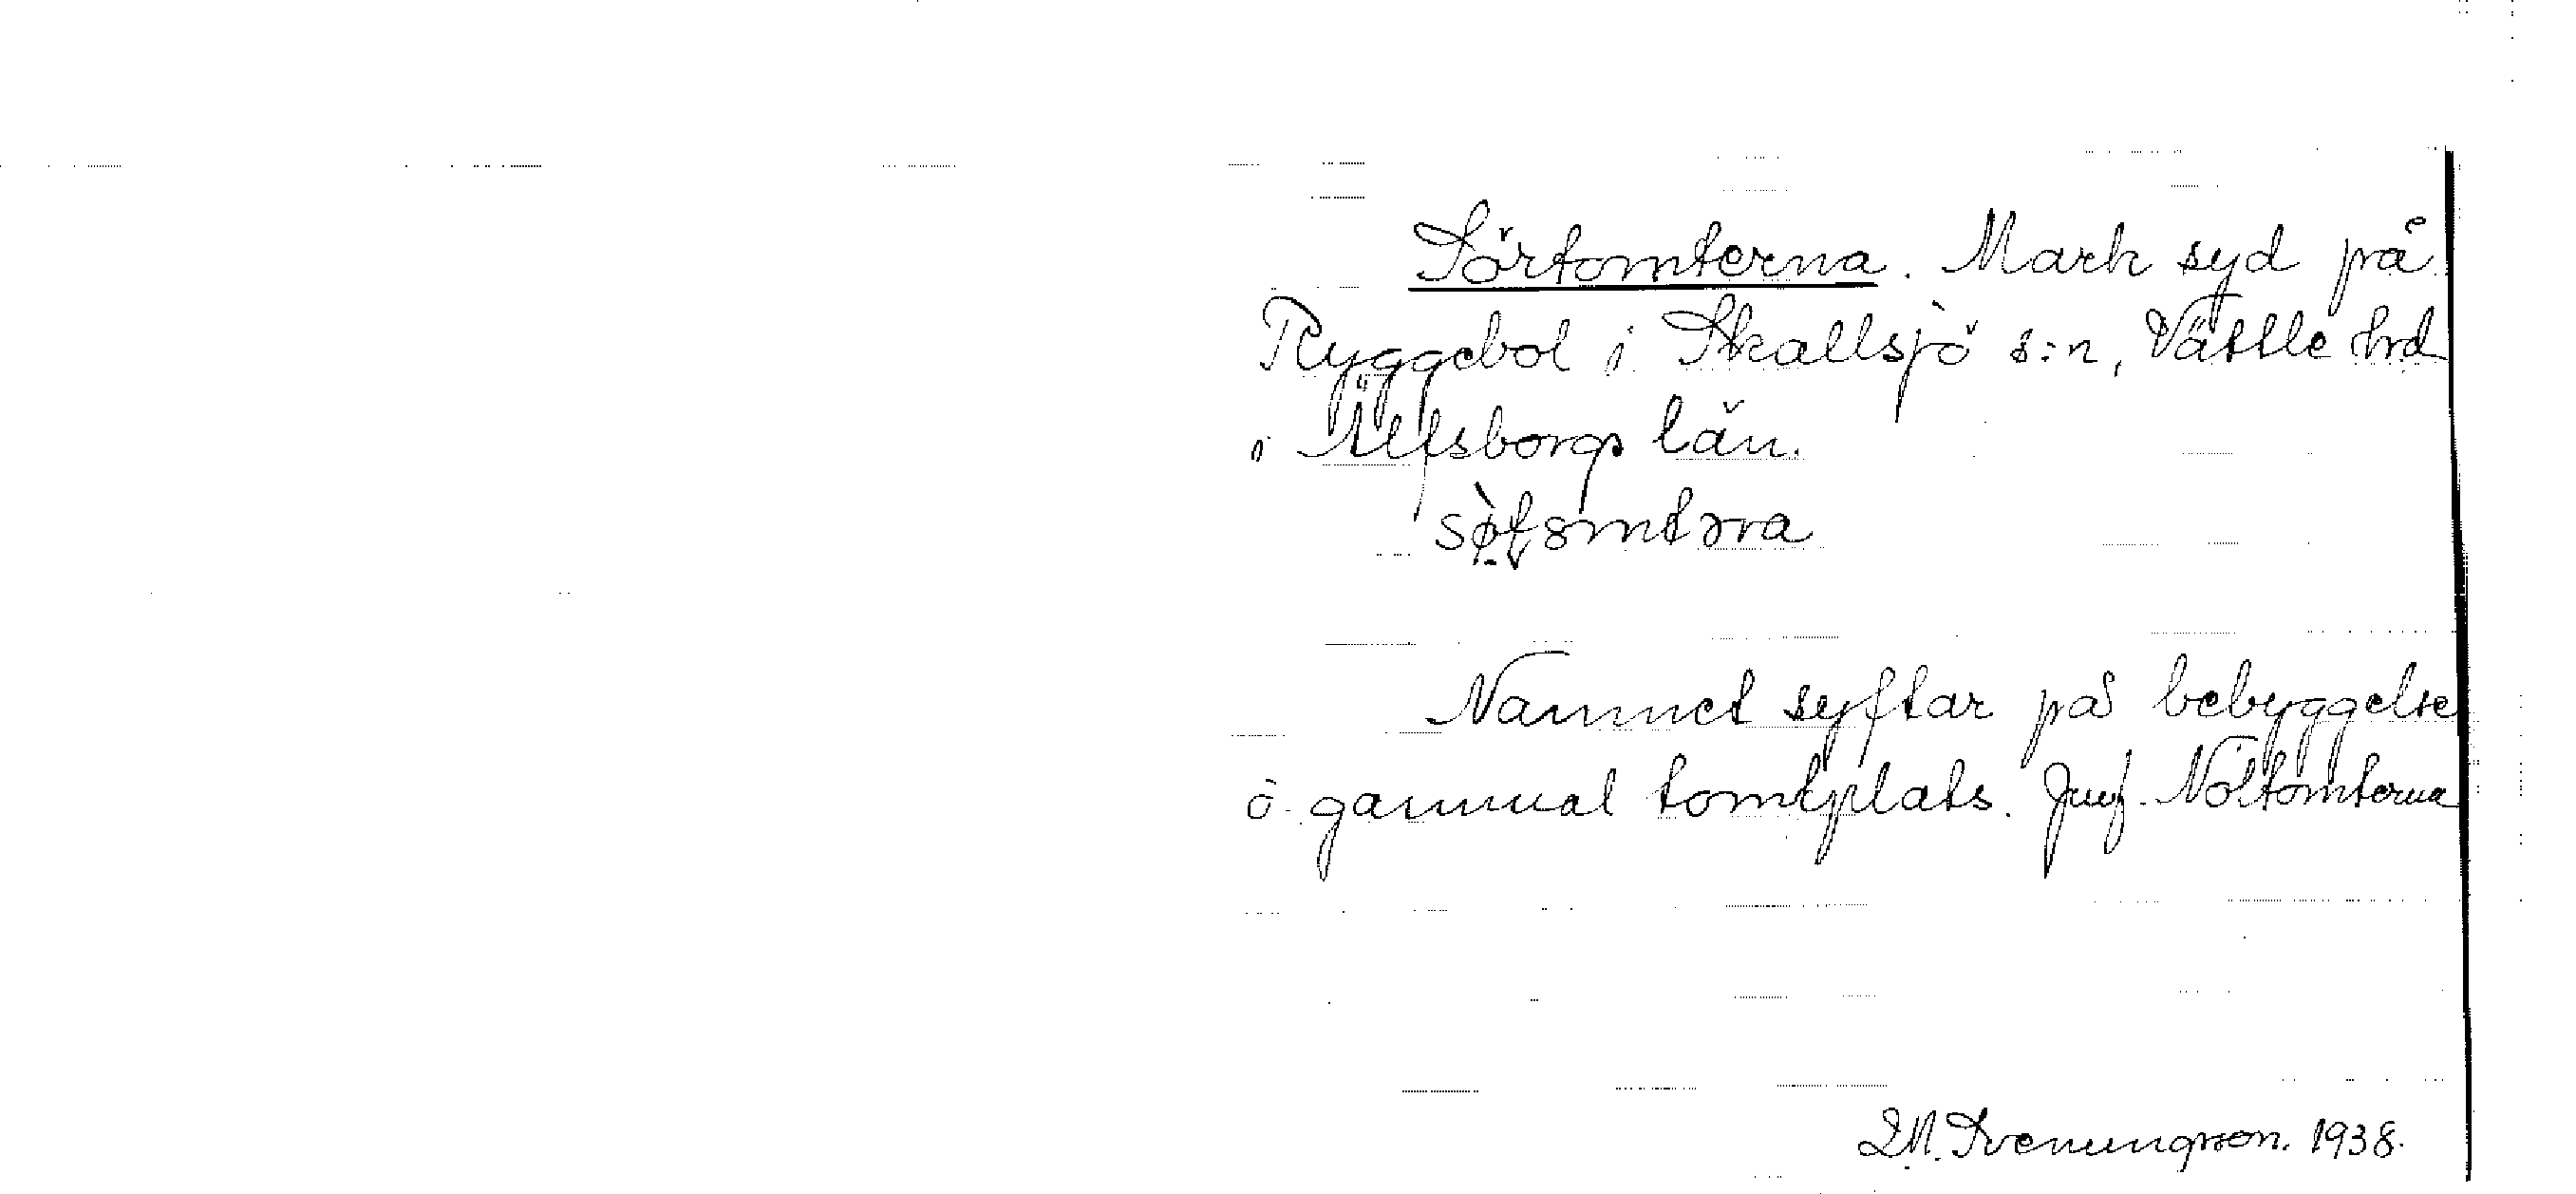 Sörtomterna. Mark syd på
Ryggebol i Skallsjö s:n, Vättle hrd
i Älfsborgs län.
Namnet syftar på bebyggelse
o. gammal tomtplats. Jmf. Nöltomterna
Svenungsson. 1938.